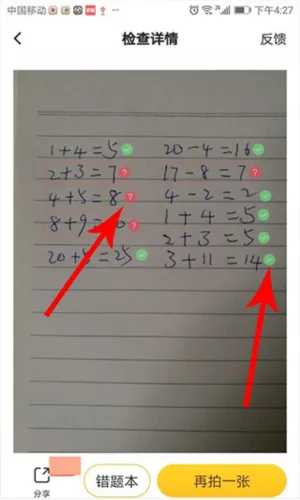 中国移动 下午4:27
检查详情 反馈
1+4=5 20-4=16
2+3=7 17-8=7
4+5=8 4-2=2
8+9= 1+4=5
2+3=5
20+5=25 3+11=14
分享 错题本 再拍一张